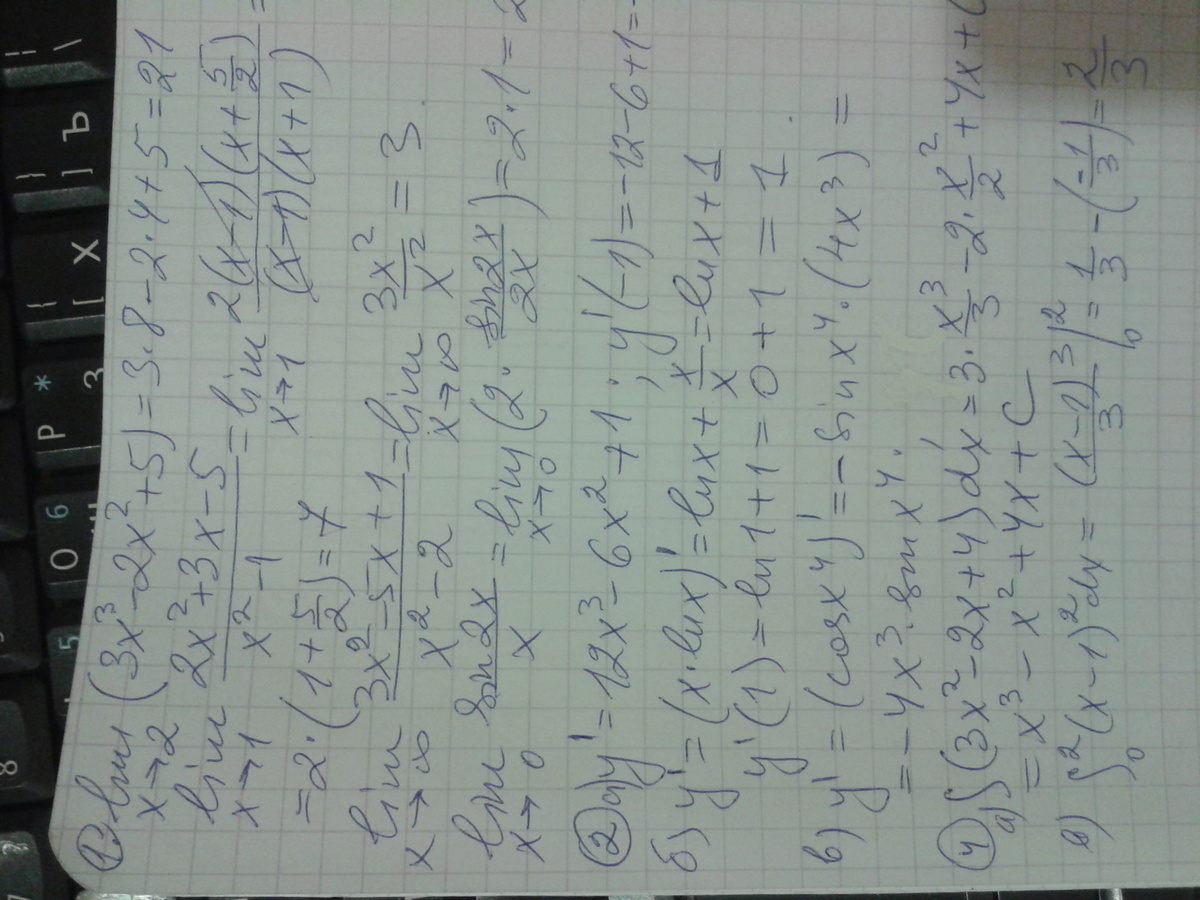 ① lim (3x³-2x²+5) = 3·8-2·4+5=21
x→2
lim (2x²+3x-5)/(x²-1) = lim (2(x-1)(x+5/2))/((x-1)(x+1)) =
x→1 x→1
=2·(1+5/2)=7
lim (3x²-5x+1)/(x²-2) = lim 3x²/x² = 3.
x→∞ x→∞
lim sin2x/x = lim (2· sin2x/2x) = 2·1=2
x→0 x→0
② а) y'=12x³-6x²+1; y'(-1)=-12-6+1=-
б) y'=(x·lnx)'=lnx+x/x=lnx+1
y'(1)=ln1+1=0+1=1.
в) y'=(cosx⁴)'=-sinx⁴·(4x³)=
=-4x³·sinx⁴.
④ а) ∫(3x²-2x+4)dx=3·x³/3-2·x²/2+4x+C
=x³-x²+4x+C
в) ∫₀²(x-1)²dx=(x-1)³/3|₀²=1/3-(-1/3)=2/3
8
5
О 6
Р *
З
[ Х ]
{ }
] Ъ
| \